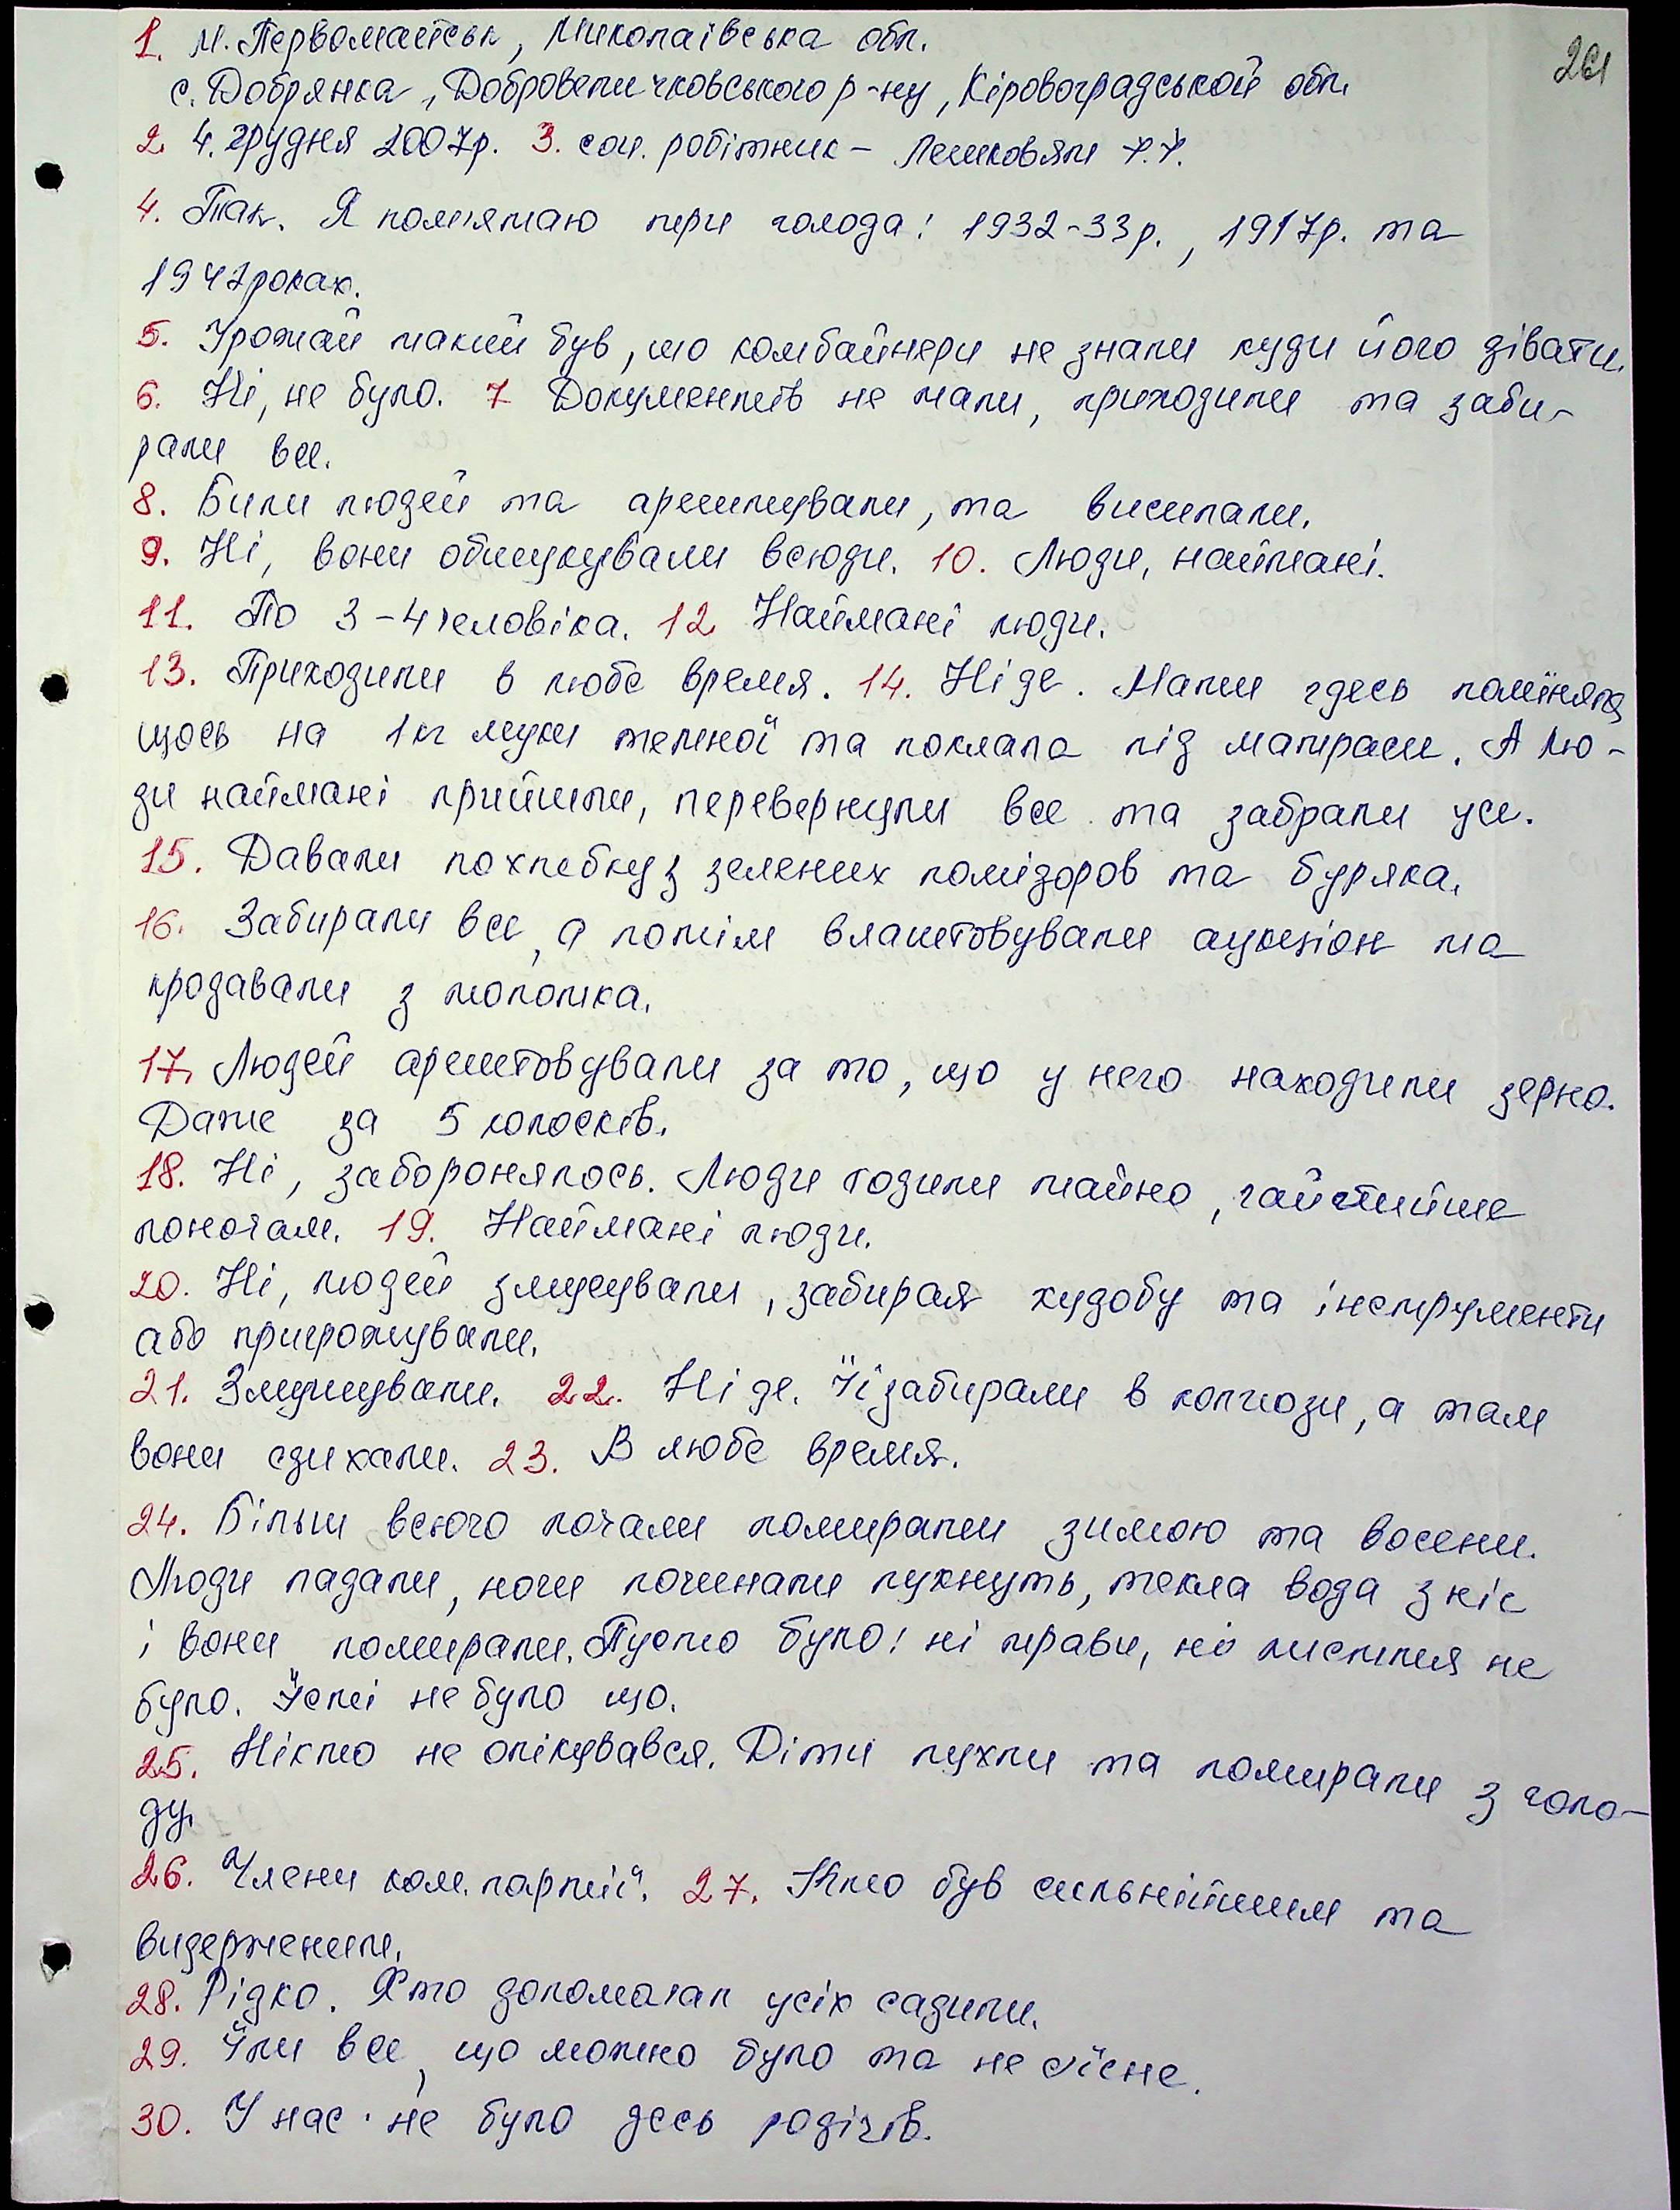 261
1. м. Первомайськ, Миколаївська обл.
с. Добрянка, Добровеличковського р-ну, Кіровоградській обл.
2. 4. грудня 2007р. 3. соц. робітник –
4. Так. Я помятаю три голода: 1932-33р., 1917р. та
1947роках.
5. Урожай такий був, що комбайнери не знали куди його дівати.
6. Ні, не було. 7 Документів не мали, приходили та заби-
рали все.
8. Били людей та арештували, та висилали.
9. Ні, вони обшукували всюди. 10. Люди, наймані.
11. По 3-4 человіка. 12. Наймані люди.
13. Приходили в любе время. 14. Ніде. Мати гдесь поміняла
щось на 1кг муки темної та поклала під матраси. А лю-
ди наймані прийшли, перевернули все та забрали усе.
15. Давали похлебку з зелених помідоров та буряка.
16. Забирали все, а потім влаштовували аукціон та
продавали з молотка.
17. Людей арештовували за то, що у него находили зерно.
Даже за 5 колосків.
18. Ні, заборонялось. Люди ходили тайно, чайстийше
поночам. 19. Наймані люди.
20. Ні, людей змушували, забирая худобу та інструменти
або пригрожували.
21. Змушували. 22. Ніде. Її забирали в колгози, а там
вони сдихали. 23. В любе время.
24. Більш всього почали помирати зимою та восени.
Люди падали, ноги починали пухнуть, текла вода з ніг
і вони помирали. Пусто було: ні трави, ні листття не
було. Їсті не було що.
25. Нікто не опікувався. Діти пухли та помирали з голо-
ду.
26. Члени ком. партії. 27. Кто був сильнійшим та
видерженим.
28. Рідко. Хто допомагал усіх садили.
29. Їли все, що можно було та не їсне.
30. У нас не було десь родічів.